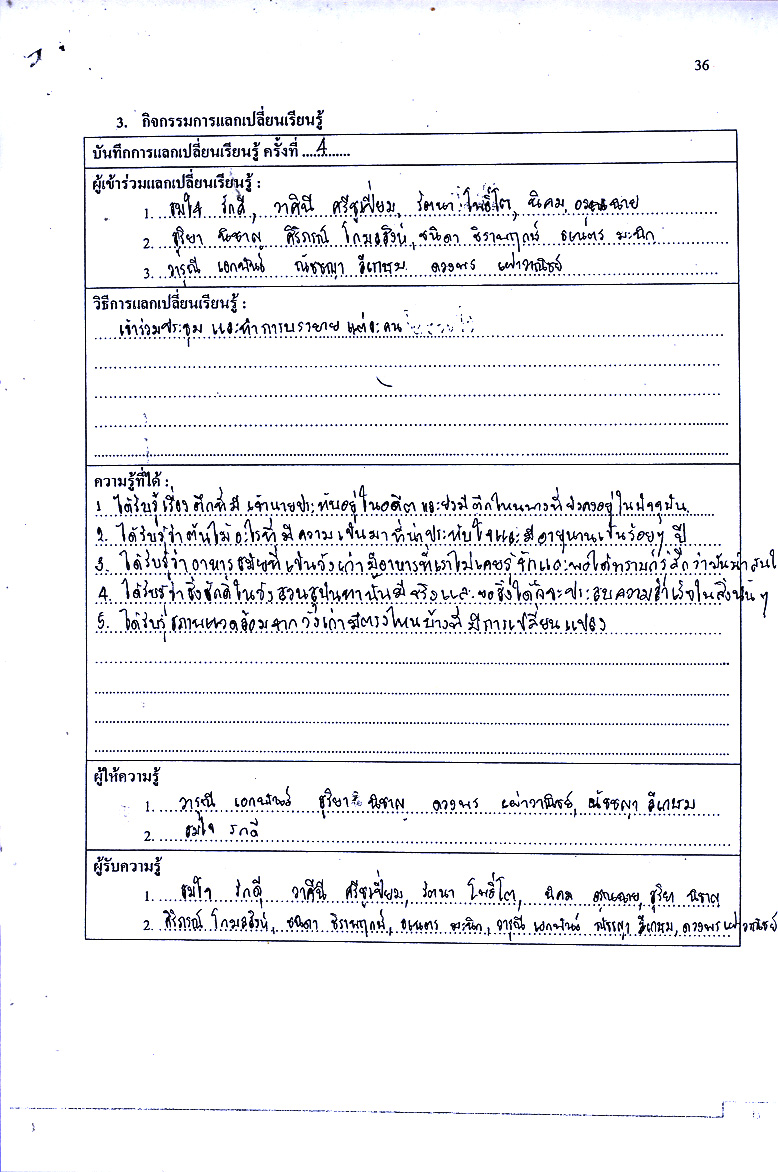 36
3. กิจกรรมการแลกเปลี่ยนเรียนรู้
บันทึกการแลกเปลี่ยนเรียนรู้ ครั้งที่ .....4.........
ผู้เข้าร่วมแลกเปลี่ยนเรียนรู้ :
1. รักดี, วาศินี ศรีชูเปี่ยม, รัตนา โพธิ์โต, นิคม
2. สุริยา ศิริภรณ์ โกมลสิงห์, ชนิดา ธิราพฤกษ์ ธเนตร มะนิก
3. วารุณี เอกพันธ์ ณัชชญา ดวงพร เผ่าวณิชย์
วิธีการแลกเปลี่ยนเรียนรู้ :
เข้าร่วมประชุม และทำการบรรยาย แต่ละคน
ความรู้ที่ได้ :
1. ได้รับรู้เรื่องตึกที่มี เจ้านายประทับอยู่ในอดีต และยังมีตึกไหนบางที่ยังคงอยู่ในปัจจุบัน
2. ได้รับรู้ว่าต้นไม้อะไรที่มีความเป็นมาที่น่าประทับใจและมีอายุนานเป็นร้อยๆ ปี
3. ได้รับรู้ว่าอาหารสมัยที่เป็นวังเก่ามีอาหารที่เราไม่เคยรู้จักและพอได้ทราบก็รู้สึกว่ามันน่าสนใ
4. ได้รับรู้ว่าสิ่งศักดิ์ในวังสวนสุนันทานั้นมีจริงและขอสิ่งใดก็จะประสบความสำเร็จในสิ่งนั้นๆ
5. ได้รับรู้สภาพแวดล้อมจากวังเก่ามีตรงไหนบ้างที่มีการเปลี่ยนแปลง
ผู้ให้ความรู้
1. วารุณี เอกพันธ์ สุริยา ดวงพร เผ่าวาณิชย์, ณัชชญา
2. รักดี
ผู้รับความรู้
1. รักดี วาศินี ศรีชูเปี่ยม, รัตนา โพธิ์โต, นิคม สุริยา
2. ศิริภรณ์ โกมลสิงห์, ชนิดา ธิราพฤกษ์, ธเนตร มะนิก, วารุณี เอกพันธ์ ณัชชญา ดวงพร เผ่าวณิชย์